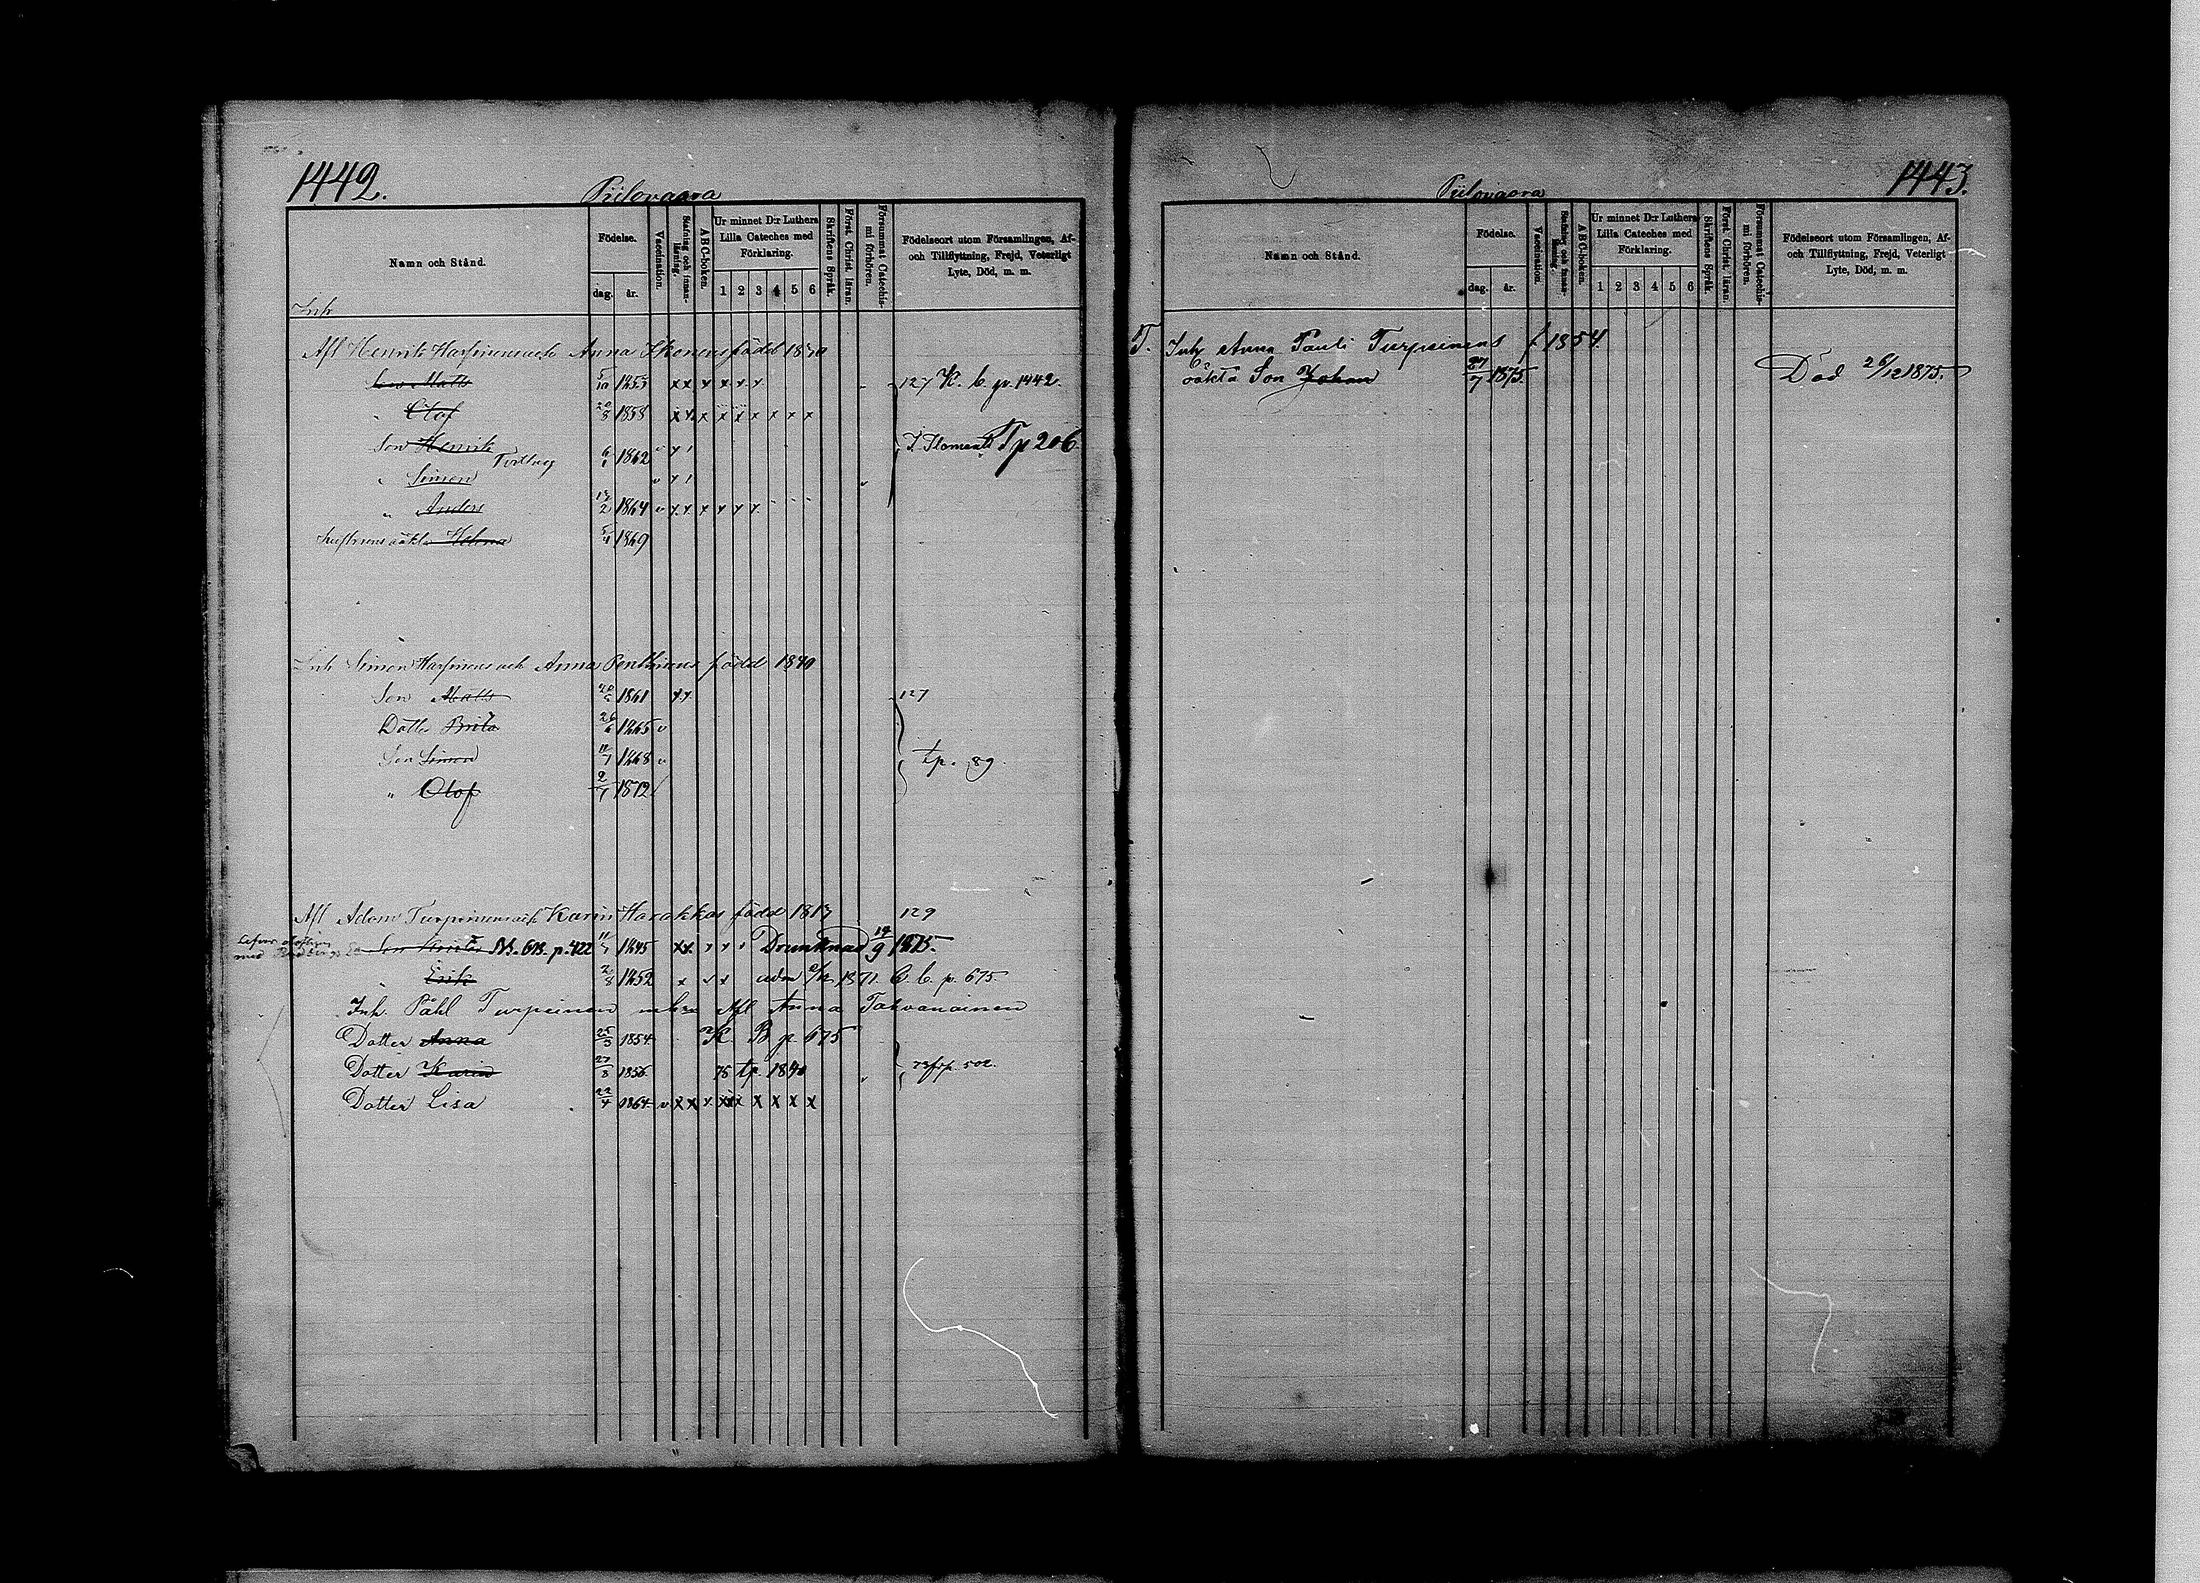 1442.
Piilovaara
Namn och Stånd.
Födelse.
dag. år.
Vaccination.
Stafning och innan-läsning.
ABC-boken.
Ur minnet D:r Luthers Lilla Cateches med Förklaring.
1 2 3 4 5 6
Skriftens Språk.
Först. Christ. läran.
Försummat Catechis-mi förhören.
Födelseort utom Församlingen, Af- och Tillflyttning, Frejd, Veterligt Lyte, Död, m. m.
Inh
Afl Henrik Harfinens och Anna Ikonens född 1830
Son Matts 5/10 1855 x x x x x x 127 K. b. p. 1442.
" Olof 20/8 1858 x x x x x x x x x
Son Henrik Tvilling 6/1 1862 I Ilomants Tp 206
" Simon
" Anders 13/2 1864 v x x x x x x
Hustruns oäkta Helena 5/4 1869
Inh Simon Harfinens och Anna Penttinens född 1840
Son Matts 1861 x x 127
Dotter Brita 26/6 1865 v
Son Simon 11/7 1868 v tp. 89.
" Olof 2/1 1872
Afl Adam Turpeinens och Karin Harakkas född 1817 129
Son N.B. p. 422 11/7 1845 x x Drunknad 14/9 1875.
" Erik 2/8 1852 x 1871. C. b. p. 675.
Inh. Påhl Turpeinen enkea Afl Anna Tahvanainen
Dotter Anna 25/3 1854. K. B p. 675
Dotter Karin 27/8 1856. 75 tp. 1840 p. 502.
Dotter Lisa 22/4 1864 v x x x x x x x x x
1443.
Piilovaara
Namn och Stånd.
Födelse.
dag. år.
Vaccination.
Stafning och innan-läsning.
ABC-boken.
Ur minnet D:r Luthers Lilla Cateches med Förklaring.
1 2 3 4 5 6
Skriftens Språk.
Först. Christ. läran.
Försummat Catechis-mi förhören.
Födelseort utom Församlingen, Af- och Tillflyttning, Frejd, Veterligt Lyte, Död, m. m.
T. Inh. Anna Pauli Turpeinens f 1854.
oäkta Son Johan 27/7 1875. Död 26/12 1875.